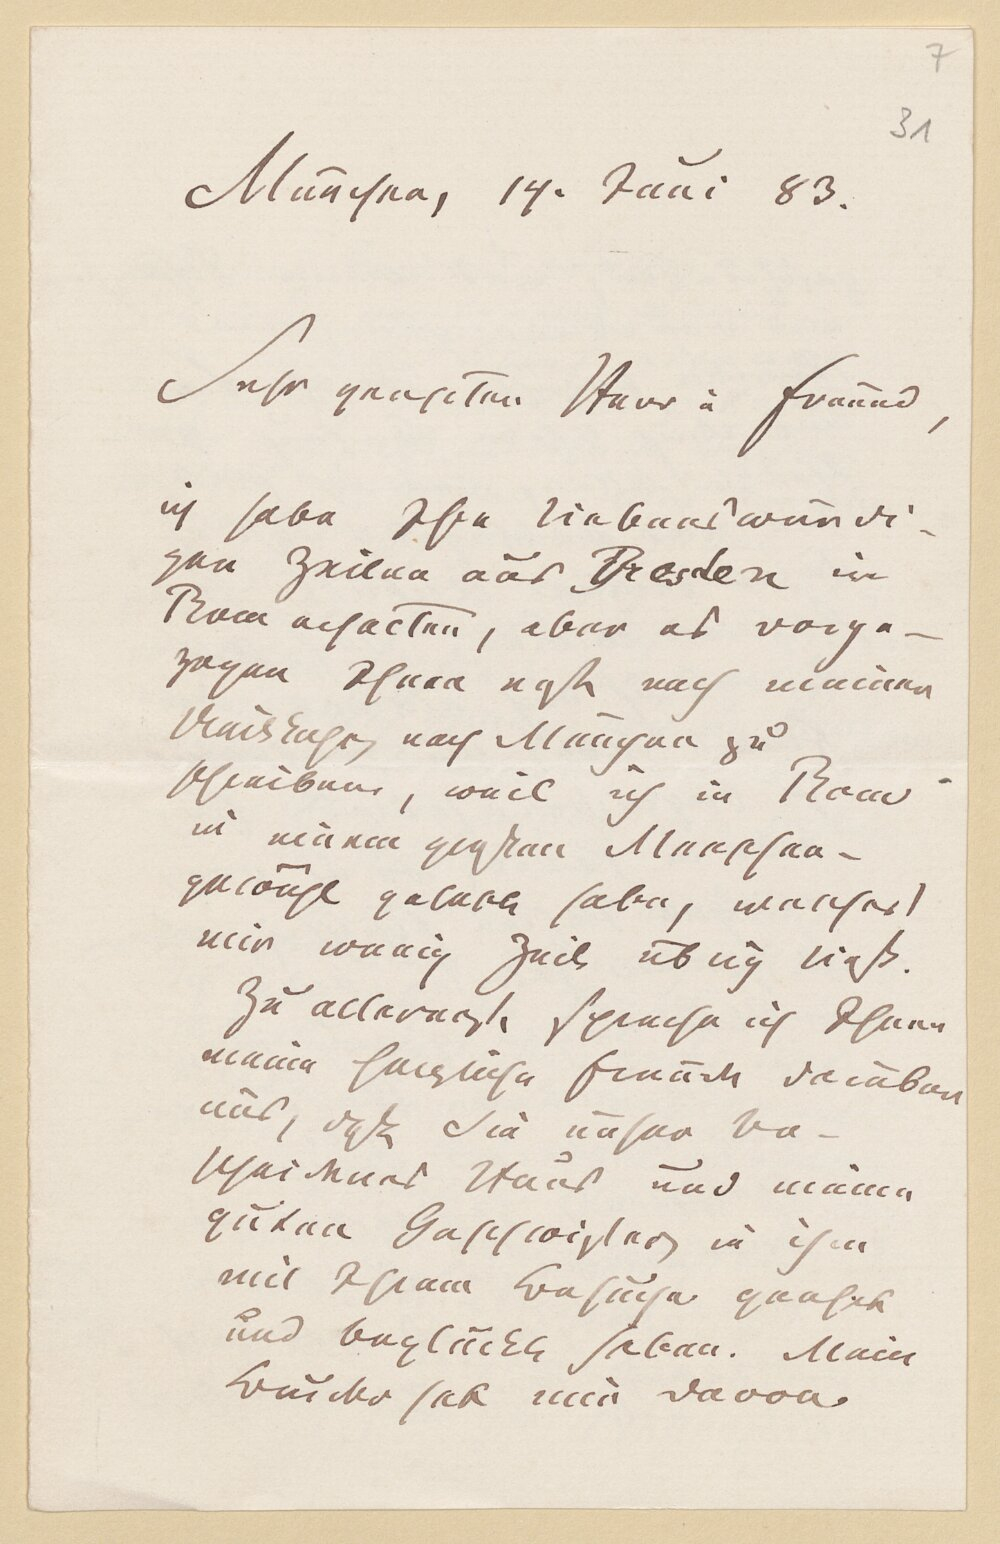 7
31
München, 14. Juni 83.
Sehr geehrter Herr u Freund,
ich habe Ihre liebenswürdi-
gen Zeilen aus Dresden in
Rom erhalten, aber es vorge-
zogen Ihnen erst nach meiner
Rückkehr nach München zu
schreiben, weil ich in Rom
in einem großen Menschen-
gewühl gelebt habe, welches
mir wenig Zeit übrig ließ.
Zu allererst spreche ich Ihnen
meine herzliche Freude darüber
aus, daß Sie unser be-
scheidenes Haus und meine
guten Geschwister in ihm
mit Ihrem Besuche geehrt
und beglückt haben. Mein
Bruder hat mir davon